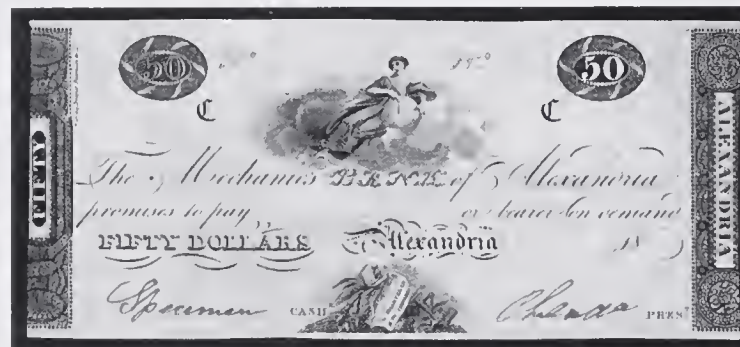 50 50
C C
FIFTY
The Mechanics BANK of Alexandria
promises to pay or bearer on demand
FIFTY DOLLARS Alexandria 18
Specimen CASHr PREST
ALEXANDRIA